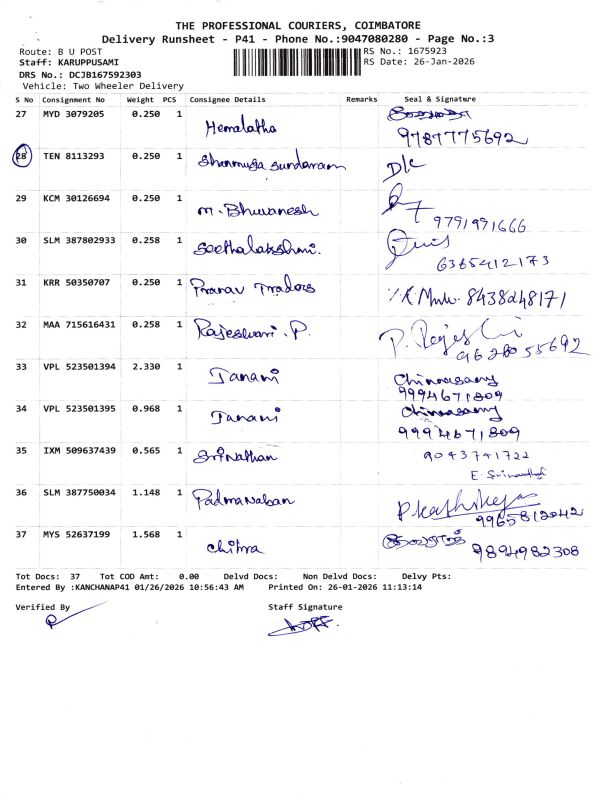 THE PROFESSIONAL COURIERS, COIMBATORE
Delivery Runsheet - P41 - Phone No.:9047080280 - Page No.:3
Route: B U POST RS No.: 1675923
Staff: KARUPPUSAMI RS Date: 26-Jan-2026
DRS No.: DCJB167592303
Vehicle: Two Wheeler Delivery
S No Consignment No Weight PCS Consignee Details Remarks Seal & Signature
27 MYD 3079205 0.250 1 Hemalatha 9787775692
28 TEN 8113293 0.250 1 Shanmuga Sundaram D/c
29 KCM 30126694 0.250 1 M. Bhuvanesh 9791991666
30 SLM 387802933 0.258 1 Seethalakshmi. 6365412173
31 KRR 50350707 0.250 1 Pranav Traders 8438248171
32 MAA 715616431 0.258 1 Rajeshwari. P. 9628055692
33 VPL 523501394 2.330 1 Janani Chinnasamy
9994671809
34 VPL 523501395 0.968 1 Janani Chinnasamy
9994671809
35 IXM 509637439 0.565 1 Srinathan 9043741722
36 SLM 387750034 1.148 1 Padmanaban 9965812042
37 MYS 52637199 1.568 1 Chitra 9894982308
Tot Docs: 37 Tot COD Amt: 0.00 Delvd Docs: Non Delvd Docs: Delvy Pts:
Entered By :KANCHANAP41 01/26/2026 10:56:43 AM Printed On: 26-01-2026 11:13:14
Verified By Staff Signature